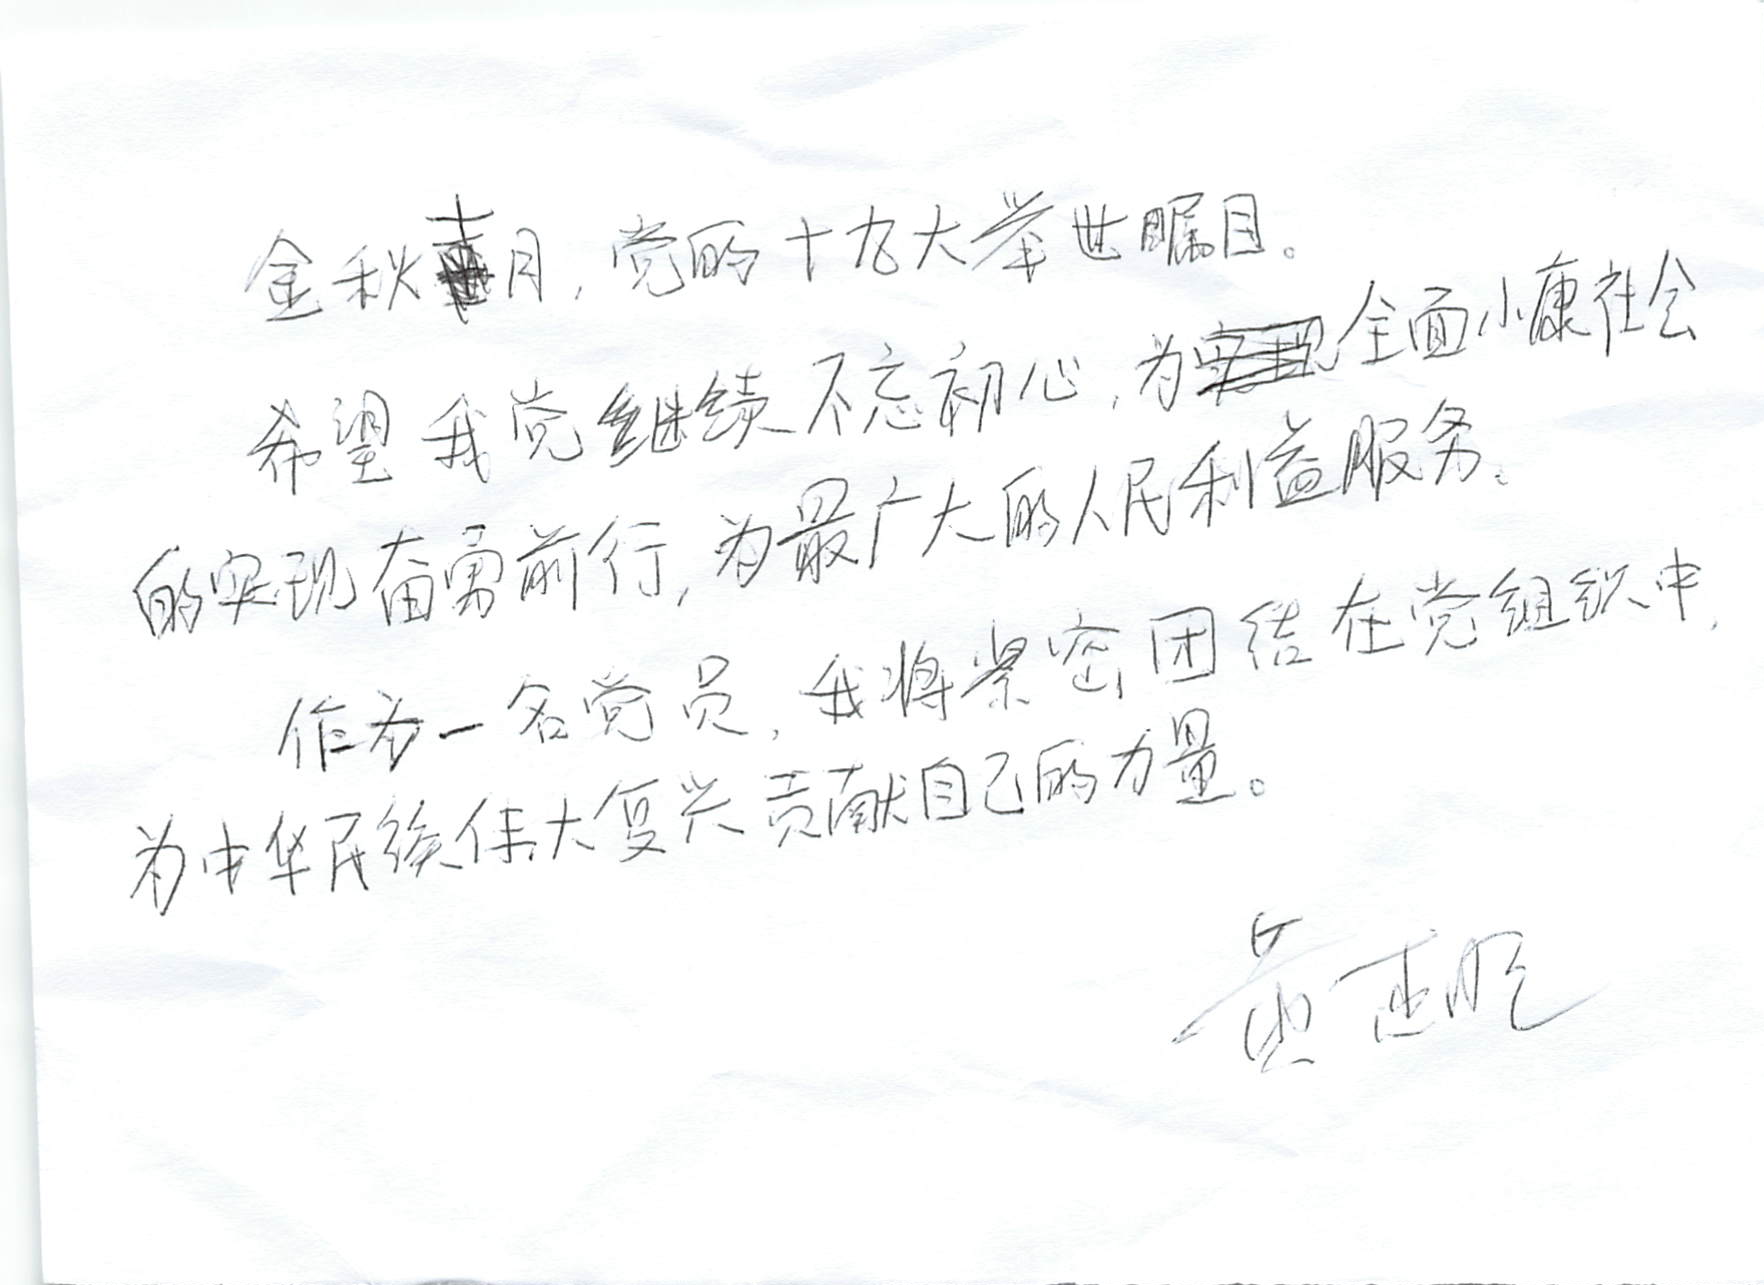 金秋十月，党的十九大举世瞩目。
希望我党继续不忘初心，为全面小康社会
的实现奋勇前行，为最广大的人民利益服务。
作为一名党员，我将紧密团结在党组织中，
为中华民族伟大复兴贡献自己的力量。